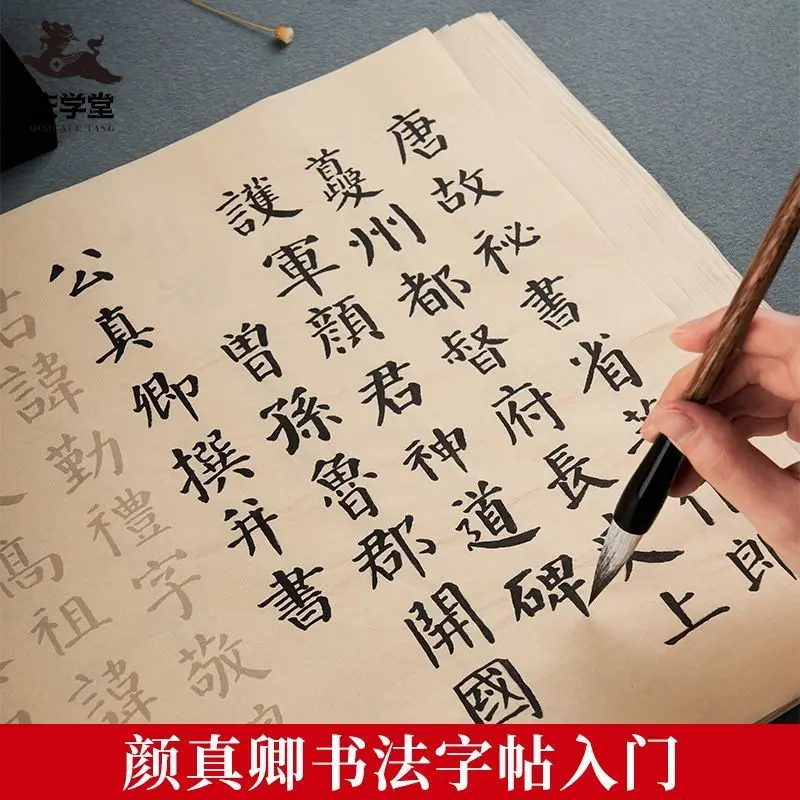 学堂
唐故祕書省著作郎
夔州都督府長史上
護軍顏君神道碑
曾孫魯郡開國
公真卿撰并書
諱勤禮字敬
高祖諱
颜真卿书法字帖入门